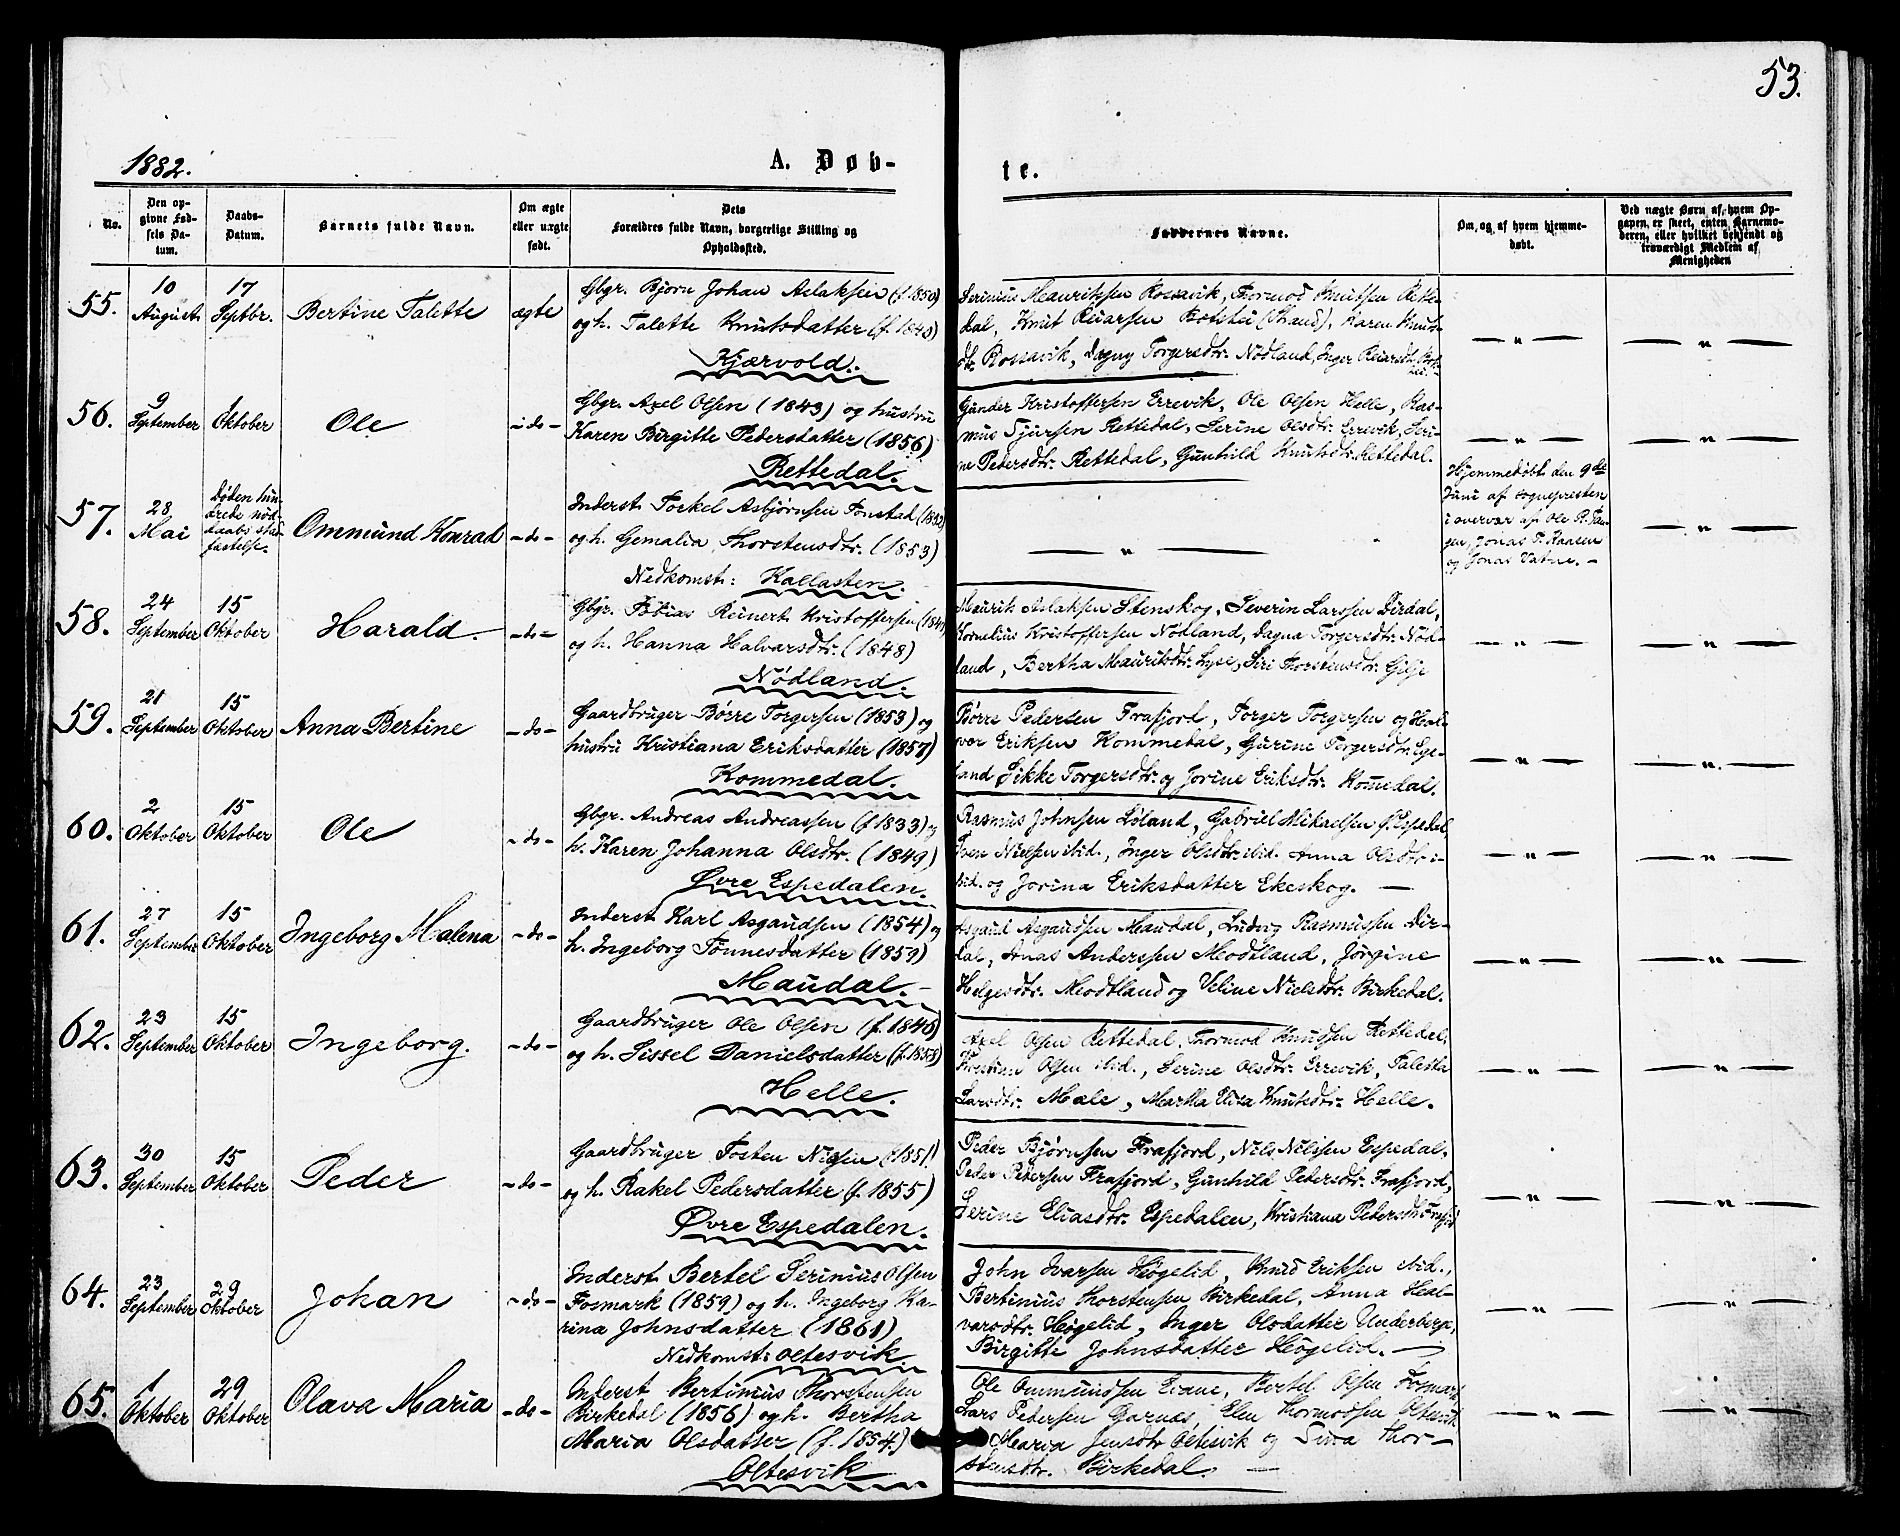 53.
1882.
A. Døb-
te.
No.
Den op-
givne Fød-
sels Da-
tum.
Daabs-
Datum.
Barnets fulde Navn.
Om ægte
eller uægte
født.
Dets
Forældres fulde Navn, borgerlige Stilling og
Opholdssted.
Faddernes Navne.
Om, og af hvem hjemme-
døbt.
Ved uægte Børn af, hvem Op-
gaven er skeet, enten Barnemo-
deren, eller hvilket bekjendt og
troværdigt Medlem af
Menigheden
55.
10
August
17
Septbr.
Bertine Talette
ægte
Gbgr. Bjørn Johan Aslaksen (f. 1850)
og h. Talette Knutsdatter (f. 1843)
Kjærvold.
Serinius Mauritsen Rossavik, Thormod Knutsen Rette-
dal, Knut Reiarsen Botsbei (Strand), Karen Knuts-
dtr. Rossavik, Dagny Torgersdtr. Nødland, Inger
— " —
— " —
56.
9
September
1
Oktober
Ole
- do -
Gbgr. Axel Olsen (1843) og hustru
Karen Birgitte Pedersdatter (1856)
Rettedal.
Gunder Kristoffersen Errevik, Ole Olsen Helle, Ras-
mus Sjursen Rettedal, Serine Olsdtr. Errevik, Seri-
ne Pedersdtr. Rettedal, Gunhild Knutsdtr. Rettedal.
— " —
— " —
57.
28
Mai
Døden hin-
drede nød-
daabs stad-
fæstelse.
Ommund Konrad
- do -
Inderst Torkel Asbjørnsen Tonstad (1832)
og h. Gemalia Thorstensdtr. (1853)
Nedkomst: Kallasten
— " —
Hjemmedøbt den 9de
Juni af sognepresten
i overvær af Ole P. Tan-
gen, Jonas T. Haasen
og Jonas Vatne. —
— " —
58.
24
September
15
Oktober
Harald
- do -
Gbgr. Tobias Reinert Kristoffersen
og h. Hanna Halvarsdtr. (1848)
Nødland.
Maurik Aslaksen Stenskog, Severin Larssen Dirdal,
Kornelius Kristoffersen Nødland, Dagna Torgersdtr. Nød-
land, Bertha Mauritsdtr. Lyse, Siri Thorstensdtr. Gilje
— " —
— " —
59.
21
September
15
Oktober
Anna Bertine
- do -
Gaardbruger Børre Torgersen (1853) og
hustru Kristiana Eriksdatter (1857)
Kommedal.
Børre Pedersen Frafjord, Torger Torgersen og Hal-
vor Eriksen Kommedal, Gurine Torgersdtr. Ege-
land Sikke Torgersdtr. og Jorine Eriksdtr. Komedal.
— " —
— " —
60.
2
Oktober
15
Oktober
Ole
- do -
Gbgr. Andreas Andreassen (f 1833) og
h. Karen Johanna Olsdtr. (1849)
Øvre Espedalen.
Rasmus Johnsen Løland, Gabriel Mikaelsen Ø. Espedal
Sven Nielsen ibid., Inger Olsdtr. ibid. Anna Olsdtr i-
bid. og Jorina Eriksdatter Ekeskog. —
— " —
— " —
61.
27
September
15
Oktober
Ingeborg Malena
- do -
Inderst Karl Asgaudsen (1854) og
h. Ingeborg Tønnesdatter (1859)
Maudal. —
Asgaud Asgaudsen Maudal, Ludvig Rasmussen Dir-
dal, Jonas Anderssen Modtland, Jørgine
Helgesdtr. Modtland og Veline Nielsdtr. Birkedal.
— " —
— " —
62.
23
September
15
Oktober
Ingeborg.
- do -
Gaardbruger Ole Olsen (f. 1846)
og h. Sissel Danielsdatter (f. 1858)
Helle.
Axel Olsen Rettedal, Thormod Knudsen Rettedal,
Kristian Olsen ibid., Serine Olsdtr. Errevik, Taletta
Larsdtr. Male, Martha Elisa Knutsdtr. Helle.
— " —
— " —
63.
30
September
15
Oktober
Peder
- do -
Gaardbruger Tosten Nielsen (1851)
og h. Rakel Pedersdatter (f. 1855)
Øvre Espedalen.
Peder Bjørnsen Frafjord, Nils Nilsen Espedal.
Peder Pedersen Frafjord, Gunhild Pedersdtr. Frafjord,
Serine Eliasdtr. Espedalen, Kristiana Pedersdtr Frafjord
— " —
— " —
64.
23
September
29
Oktober
Johan
- do -
Inderst Bertel Serinius Olsen
Fosmark (1859) og h. Ingeborg Ka-
rina Johnsdatter (1861)
Nedkomst: Oltesvik.
John Ivarsen Høgelid, Knud Eriksen ibid.,
Bertinius Thorstensen Birkedal, Anna Hal-
varsdtr. Høgelid, Inger Olsdatter Underberge,
Birgitte Johnsdatter Høgelid. —
— " —
— " —
65.
1
Oktober
29
Oktober
Olava Maria
- do -
Inderst Bertinius Thorstensen
Birkedal (1856) og h. Bertha
Maria Olsdatter (f. 1854.)
Oltesvik
Ole Ommundsen Eiane, Bertel Olsen Fosmark
Lars Pedersen Garnæs, Elen Thormodsen Oltesvik
Maria Jensdtr Oltesvik og Sina Thor-
stensdtr. Birkedal. —
— " —
— " —